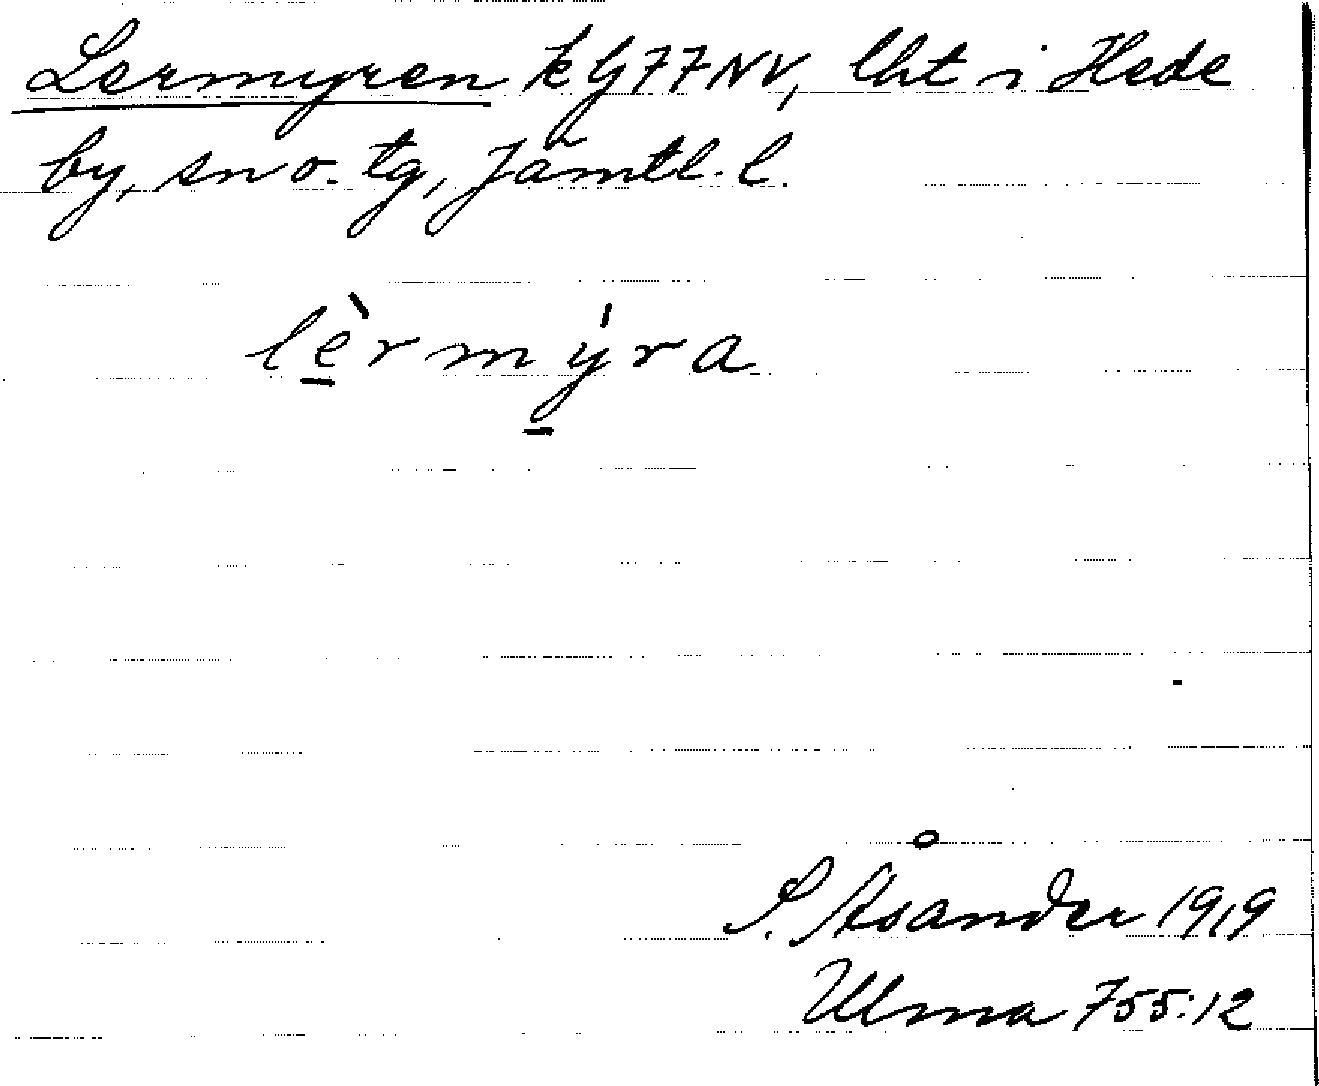 Lermyren kbl 77NV, lht i Hede
by, sn o. tg, Jämtl. l.
lè̱rmý̱ra
S. Åsander 1919
Ulma 755:12